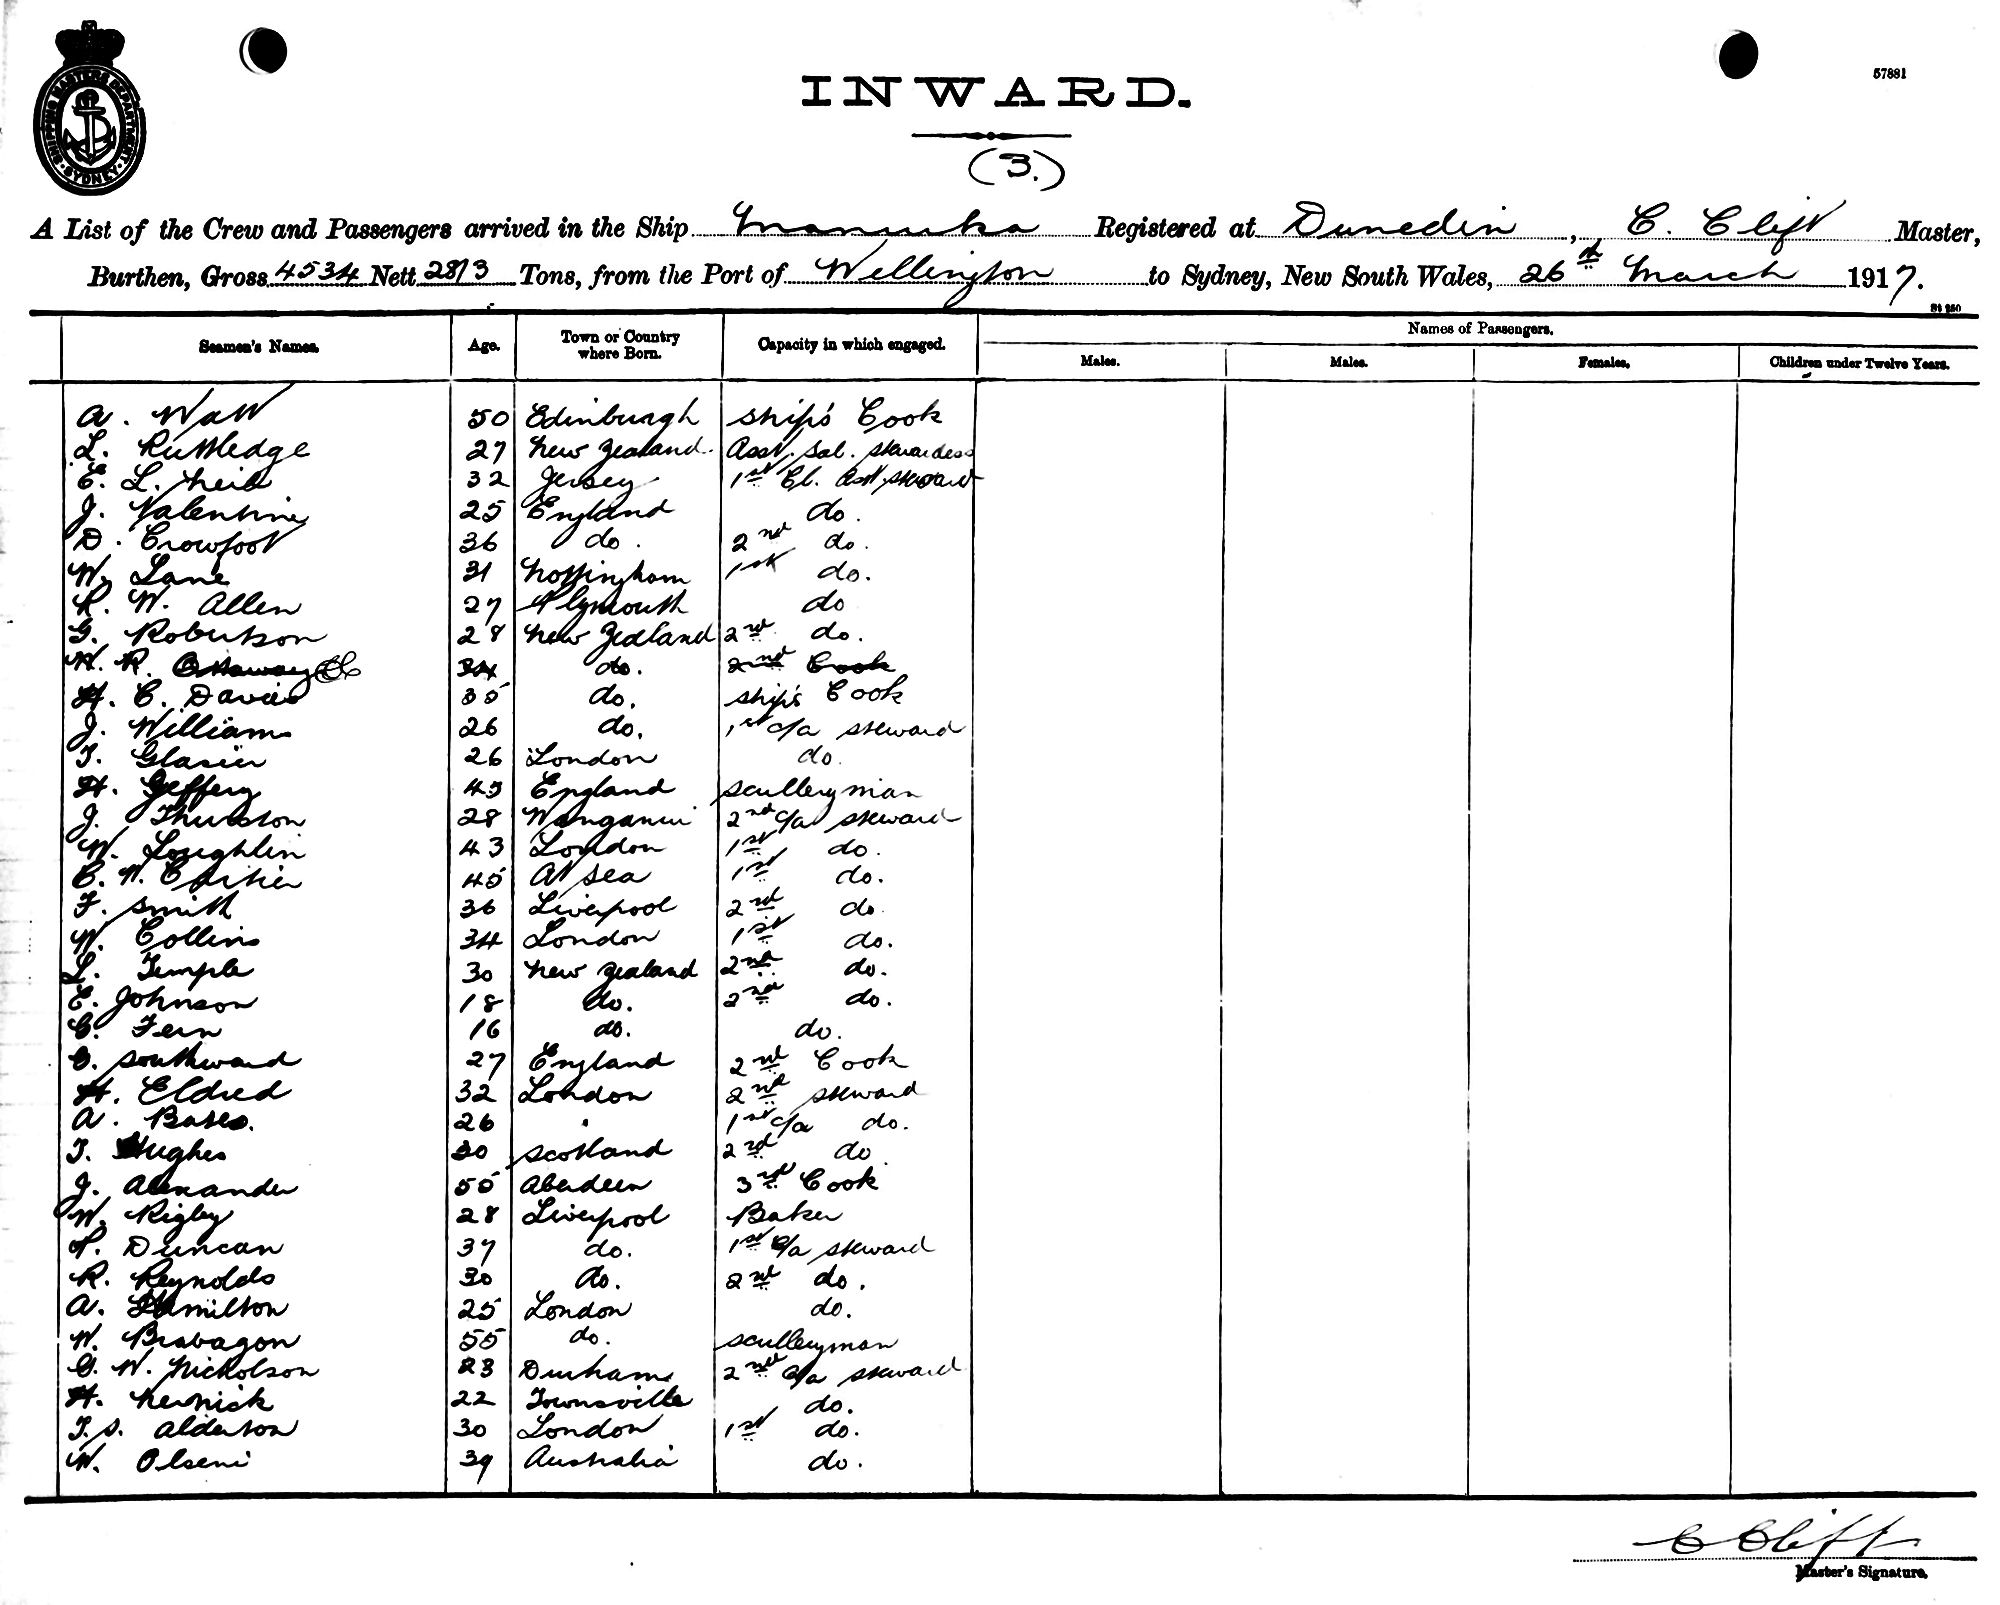 SHIPPING MASTERS DEPARTMENT
SYDNEY
57881
INWARD.
(3.)
A List of the Crew and Passengers arrived in the Ship Manuka Registered at Dunedin, C. Clift Master,
Burthen, Gross 4534 Nett 2813 Tons, from the Port of Wellington to Sydney, New South Wales, 26th March 1917.
St 250
Seamen's Names. Age. Town or Country where Born. Capacity in which engaged. Names of Passengers.
Males. Males. Females. Children under Twelve Years.
A. Watt 50 Edinburgh Ship's Cook
L. Rutledge 27 New Zealand Asst. Sal. Stewardess
E. L. Neil 32 Jersey 1st Cl. Asst. Steward
J. Valentine 25 England do.
D. Crowfoot 36 do. 2nd do.
W. Lane 31 Nottingham 1st do.
R. W. Allen 27 Plymouth do
G. Robertson 28 New Zealand 2nd do.
H. R. Ottaway 34 do. 2nd Cook
H. C. Davies 35 do. Ship's Cook
J. Williams 26 do. 1st c/a Steward
T. Glasier 26 London do.
H. Jeffery 45 England Scullery man
J. Thurston 28 Wanganui 2nd c/a Steward
W. Loughlin 43 London 1st do.
C. W. 45 At Sea 1st do.
F. Smith 36 Liverpool 2nd do.
W. Collins 34 London 1st do.
L. Temple 30 New Zealand 2nd do.
E. Johnson 18 do. 2nd do.
C. Fern 16 do. do.
G. Southward 27 England 2nd Cook
H. Eldred 32 London 2nd Steward
A. Bates. 26 " 1st c/a do.
T. Hughes 30 Scotland 2nd do.
J. Alexander 55 Aberdeen 3rd Cook
W. Rigby 28 Liverpool Baker
P. Duncan 37 do. 1st c/a Steward
R. Reynolds 30 do. 2nd do.
A. Hamilton 25 London do.
W. Brabagon 55 do. Scullery man
G. W. Nicholson 23 Durham 2nd c/a Steward
H. 22 Townsville do.
T. S. Alderton 30 London 1st do.
W. Olseni 39 Australia do.
C Clift
Master's Signature.